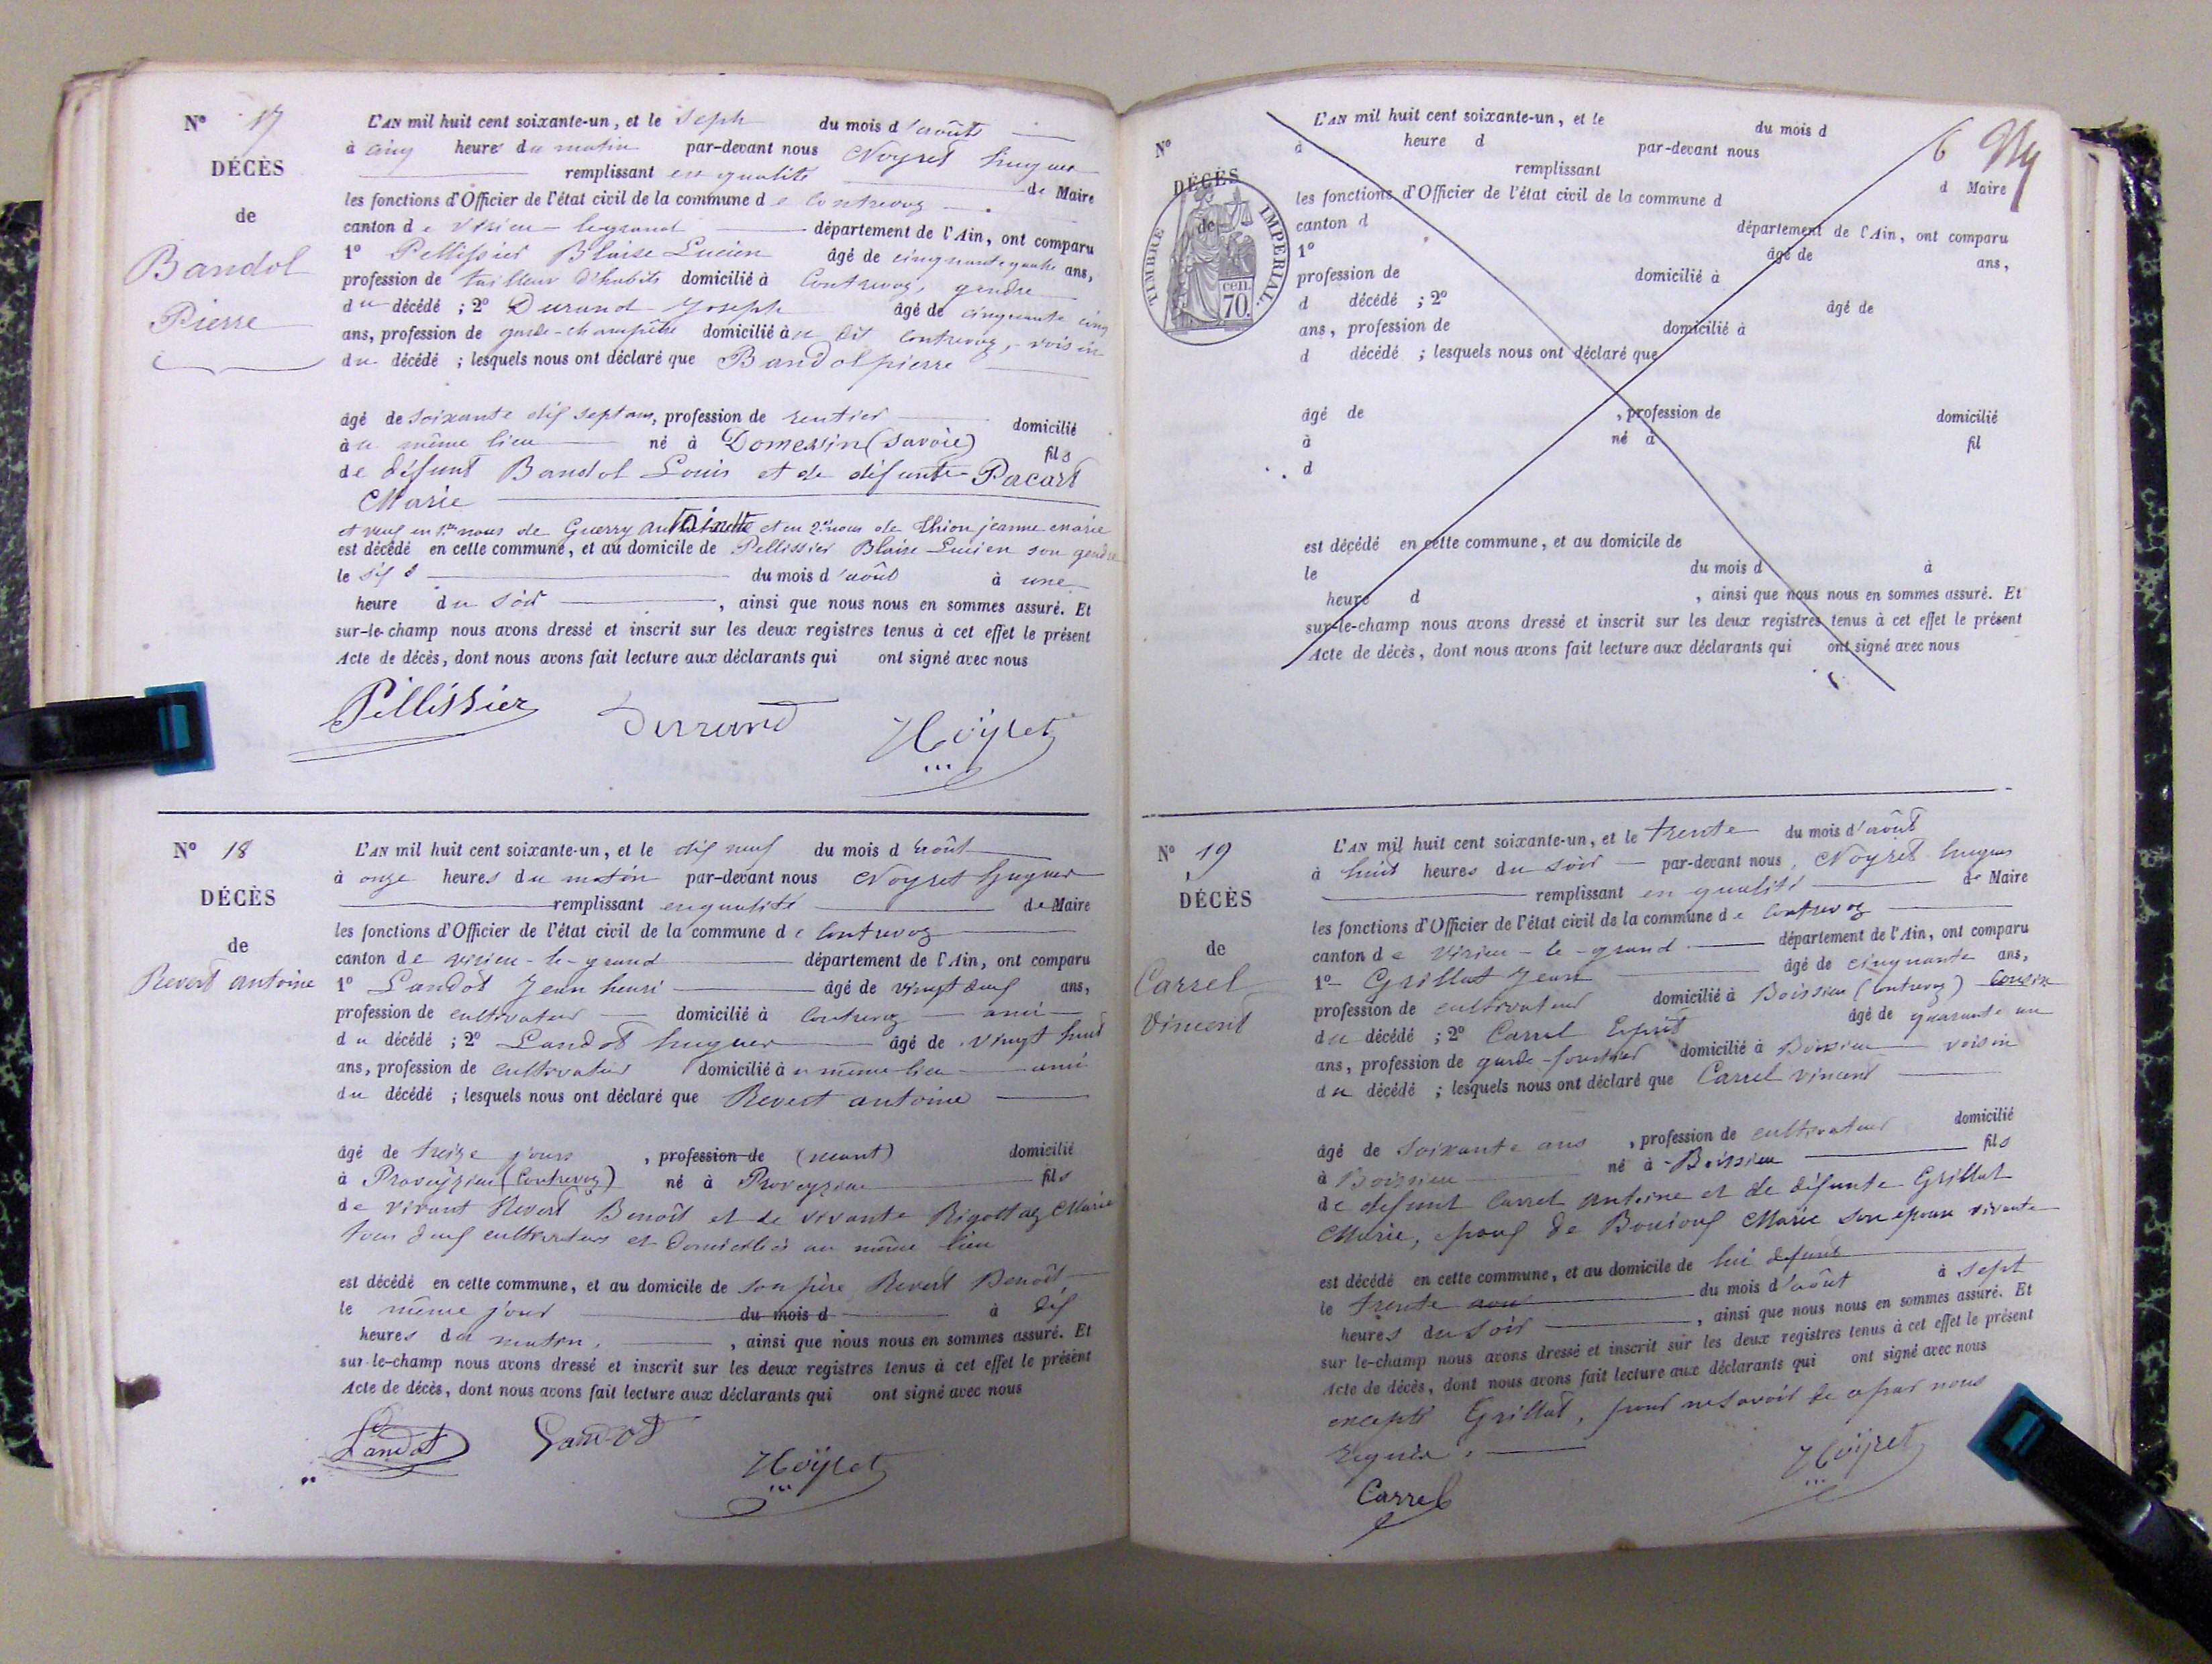 N° 17
DÉCÈS
de
Bandol
Pierre
L'AN mil huit cent soixante-un, et le sept du mois d'août
à cinq heures du matin par-devant nous Noyret hugues
remplissant en qualité de Maire
les fonctions d'Officier de l'état civil de la commune de Contrevoz
canton de virieu-legrand département de l'Ain, ont comparu
1° Pellissier Blaise Lucien âgé de cinquante quatre ans,
profession de tailleur d'habits domicilié à Contrevoz, gendre
du décédé ; 2° Durand Joseph âgé de cinquante cinq
ans, profession de garde-champêtre domicilié à u dit contrevoz, voisin
du décédé ; lesquels nous ont déclaré que Bandol pierre
âgé de soixante dix sept ans, profession de rentier domicilié
à u même lieu né à Domessin (savoie) fils
de défunt Bandol Louis et de défunte Pacart
Marie
et veuf en 1res noces de Guerry antoinette et en 2es noces de Thion jeanne marie
est décédé en cette commune, et au domicile de Pellissier Blaise Lucien son gendre
le six du mois d'août à une
heure du soir , ainsi que nous nous en sommes assuré. Et
sur-le-champ nous avons dressé et inscrit sur les deux registres tenus à cet effet le présent
Acte de décès, dont nous avons fait lecture aux déclarants qui ont signé avec nous
Pellissier Durand Noÿret
N° 18
DÉCÈS
de
Revert antoine
L'AN mil huit cent soixante-un, et le dix neuf du mois d'août
à onze heures du matin par-devant nous Noyret hugues
remplissant en qualité de Maire
les fonctions d'Officier de l'état civil de la commune de Contrevoz
canton de virieu-le-grand département de l'Ain, ont comparu
1° Landot Jean henri âgé de vingt deux ans,
profession de cultivateur domicilié à Contrevoz ami
du décédé ; 2° Landot hugues âgé de vingt huit
ans, profession de cultivateur domicilié à u même lieu ami
du décédé ; lesquels nous ont déclaré que Revert antoine
âgé de treize jours , profession de (néant) domicilié
à Proveyzieu (Contrevoz) né à Proveyzieu fils
de vivant Revert Benoît et de vivante Rigottaz Marie
tous deux cultivateurs et domiciliés au même lieu
est décédé en cette commune, et au domicile de son père Revert Benoît
le même jour du mois d à dix
heures du matin, , ainsi que nous nous en sommes assuré. Et
sur-le-champ nous avons dressé et inscrit sur les deux registres tenus à cet effet le présent
Acte de décès, dont nous avons fait lecture aux déclarants qui ont signé avec nous
Landot Landot Noÿret
6
N°
DÉCÈS
de
TIMBRE IMPÉRIAL.
70 cen.
L'AN mil huit cent soixante-un, et le du mois d
à heure d par-devant nous
remplissant d Maire
les fonctions d'Officier de l'état civil de la commune d
canton d département de l'Ain, ont comparu
1° âgé de ans,
profession de domicilié à
d décédé ; 2° âgé de
ans, profession de domicilié à
d décédé ; lesquels nous ont déclaré que
âgé de , profession de domicilié
à né à fil
d
est décédé en cette commune, et au domicile de
le du mois d à
heure d , ainsi que nous nous en sommes assuré. Et
sur-le-champ nous avons dressé et inscrit sur les deux registres tenus à cet effet le présent
Acte de décès, dont nous avons fait lecture aux déclarants qui ont signé avec nous
N° 19
DÉCÈS
de
Carrel
Vincent
L'AN mil huit cent soixante-un, et le trente du mois d'août
à huit heures du soir par-devant nous, Noyret hugues
remplissant en qualité de Maire
les fonctions d'Officier de l'état civil de la commune de Contrevoz
canton de Virieu-le-grand département de l'Ain, ont comparu
1° Grillat Jean âgé de cinquante ans,
profession de cultivateur domicilié à Boissieu (Contrevoz) cousin
du décédé ; 2° Carrel Esprit âgé de quarante un
ans, profession de garde-forestier domicilié à Boissieu voisin
du décédé ; lesquels nous ont déclaré que Carrel vincent
âgé de soixante ans , profession de cultivateur domicilié
à Boissieu né à Boissieu fils
de défunt Carrel antoine et de défunte Grillat
Marie, époux de Marie son épouse vivante
est décédé en cette commune, et au domicile de lui défunt
le trente aout du mois d'août à sept
heures du soir , ainsi que nous nous en sommes assuré. Et
sur le-champ nous avons dressé et inscrit sur les deux registres tenus à cet effet le présent
Acte de décès, dont nous avons fait lecture aux déclarants qui ont signé avec nous
excepté Grillat, pour ne savoir de ce par nous
requis.
Carrel Noÿret